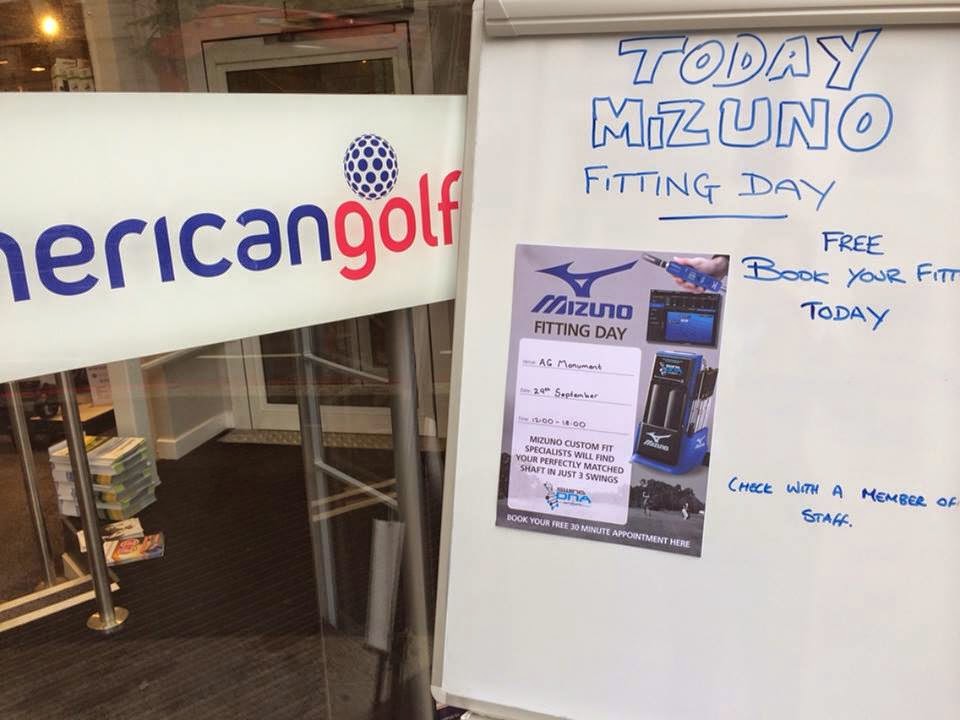 mericangolf
TODAY
MIZUNO
FITTING DAY
FREE
BOOK YOUR FITT
TODAY
MIZUNO
FITTING DAY
Venue: AG Monument
Date: 29th September
Time: 12:00 - 18:00
MIZUNO CUSTOM FIT
SPECIALISTS WILL FIND
YOUR PERFECTLY MATCHED
SHAFT IN JUST 3 SWINGS
SWING
DNA
BOOK YOUR FREE 30 MINUTE APPOINTMENT HERE
MIZUNO
CHECK WITH A MEMBER OF
STAFF.